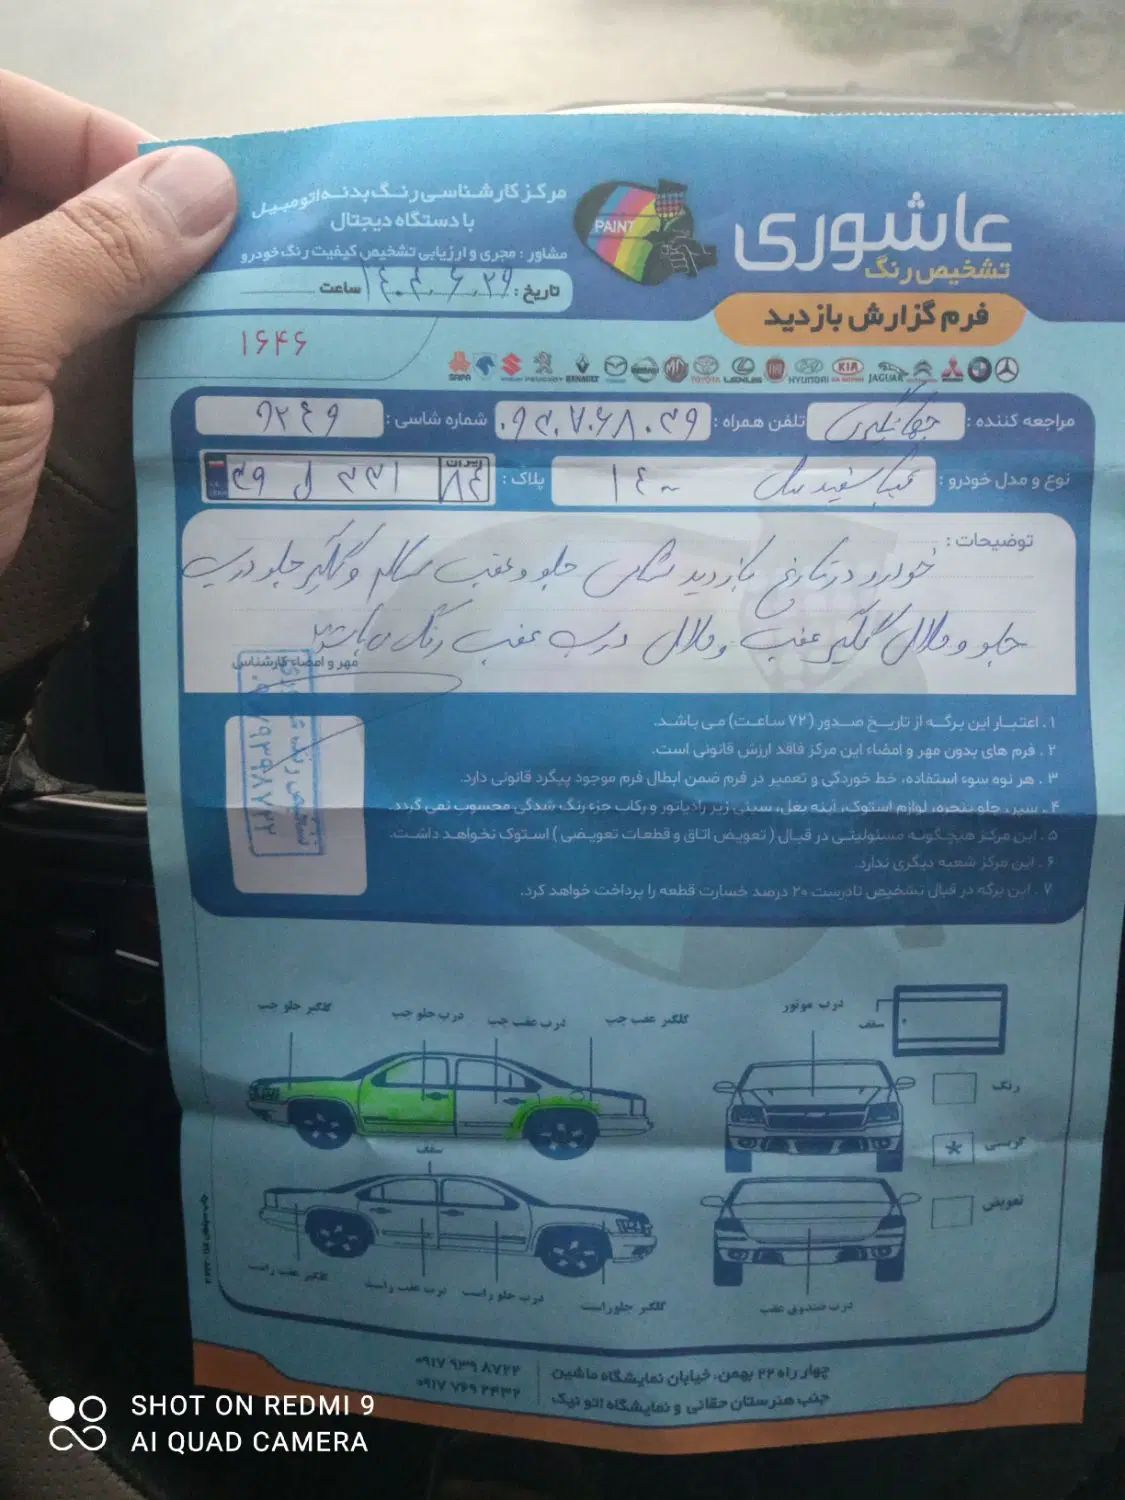 مرکز کارشناسی رنگ بدنه اتومبیل
با دستگاه دیجیتال
مشاور : مجری و ارزیابی تشخیص کیفیت رنگ خودرو
PAINT
عاشوری
تشخیص رنگ
فرم گزارش بازدید
تاریخ : ساعت
۱۶۴۶
SAIPA PEUGEOT RENAULT MAZDA NISSAN MG TOYOTA LEXUS HYUNDAI KIA JAGUAR
مراجعه کننده : جهانگیری تلفن همراه : شماره شاسی :
نوع و مدل خودرو : سفید ۱۴۰۰ پلاک : ایران
توضیحات :
خودرو در تاریخ بازدید شاسی جلو و عقب سالم و گلگیر جلو درب
جلو و گلگیر عقب درب عقب رنگ می باشد
مهر و امضاء کارشناس
۱ . اعتبار این برگه از تاریخ صدور (۷۲ ساعت) می باشد.
۲ . فرم های بدون مهر و امضاء این مرکز فاقد ارزش قانونی است.
۳ . هر نوع سوء استفاده، خط خوردگی و تعمیر در فرم ضمن ابطال فرم موجود پیگرد قانونی دارد.
۴ . سپر، جلو پنجره، لوازم استوک، آینه بغل، سینی زیر رادیاتور و رکاب جزء رنگ شدگی محسوب نمی گردد.
۵ . این مرکز هیچگونه مسئولیتی در قبال ( تعویض اتاق و قطعات تعویضی ) استوک نخواهد داشت.
۶ . این مرکز شعبه دیگری ندارد.
۷ . این برگه در قبال تشخیص نادرست ۲۰ درصد خسارت قطعه را پرداخت خواهد کرد.
گلگیر جلو چپ
درب جلو چپ
درب عقب چپ
گلگیر عقب چپ
درب موتور
سقف
رنگ
تعویض
سقف
گلگیر عقب راست
درب عقب راست
درب جلو راست
گلگیر جلو راست
درب صندوق عقب
چهار راه ۲۲ بهمن، خیابان نمایشگاه ماشین
جنب هنرستان حقانی و نمایشگاه اتو نیک
۰۹۱۷ ۹۳۹ ۸۷۲۲
۰۹۱۷ ۷۶۹ ۲۴۳۲
SHOT ON REDMI 9
AI QUAD CAMERA